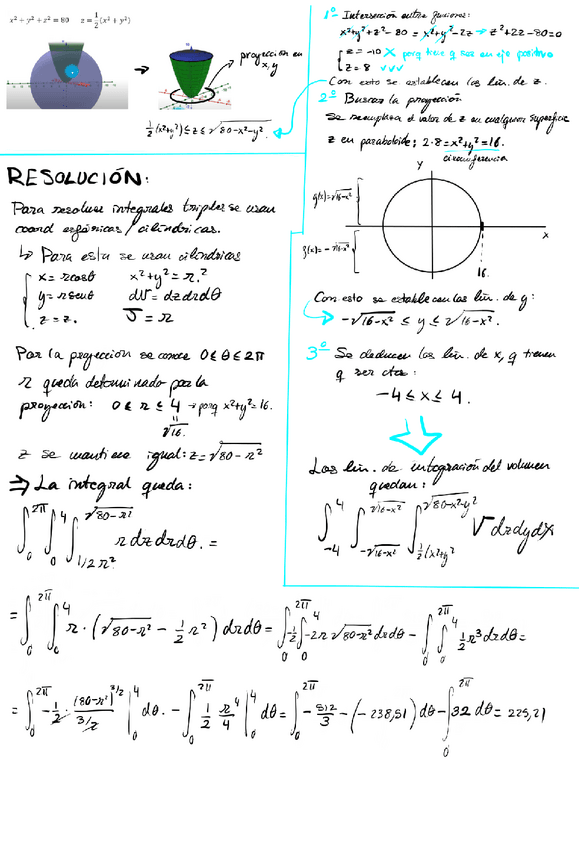 x² + y² + z² = 80    z = 1/2 (x² + y²)
→ proyección en x, y
1/2 (x²+y²) ≤ z ≤ √80-x²-y²
1º Intersección entre funciones:
x²+y²+z²-80 = x²+y²-2z → z²+2z-80=0
z = -10 X porq tiene q ser en eje positivo
z = 8 ✓✓✓
Con esto se establecen los lím. de z.
2º Buscar la proyección
Se reemplaza el valor de z en cualquier superficie
z en paraboloide: 2·8 = x²+y² = 16.
circunferencia
y
g(x)=√16-x²
f(x)= -√16-x²
x
16
Con esto se establecen los lím. de y:
-√16-x² ≤ y ≤ √16-x².
3º Se deducen los lím. de x, q tienen
q ser ctes:
-4 ≤ x ≤ 4.
Los lím. de integración del volumen
quedan:
∫₋₄⁴ ∫_{-√16-x²}^{√16-x²} ∫_{1/2(x²+y²}^{√80-x²-y²} dzdydx
RESOLUCIÓN:
Para resolver integrales triples se usan
coord esféricas / cilíndricas.
↳ Para esta se usan cilíndricas
x = rcosθ    x²+y² = r.²
y = rsenθ    dV = dzdrdθ
z = z.    J = r
Por la proyección se conoce 0 ≤ θ ≤ 2π
r queda determinado por la
proyección: 0 ≤ r ≤ 4 → porq x²+y²=16.
√16.
z se mantiene igual: z = √80-r²
⇒ La integral queda:
∫₀^{2π} ∫₀⁴ ∫_{1/2r²}^{√80-r²} r dz drdθ. =
= ∫₀^{2π} ∫₀⁴ r·(√80-r² - 1/2 r²) drdθ = ∫₀^{2π} -1/2 ∫₀⁴ -2r √80-r² drdθ - ∫₀^{2π} ∫₀⁴ 1/2 r³ drdθ =
= ∫₀^{2π} -1/2 · (80-r²)^{3/2} / 3/2 |₀⁴ dθ. - ∫₀^{2π} 1/2 r⁴/4 |₀⁴ dθ = ∫₀^{2π} -512/3 - (-238,51) dθ - ∫₀^{2π} 32 dθ = 225,21